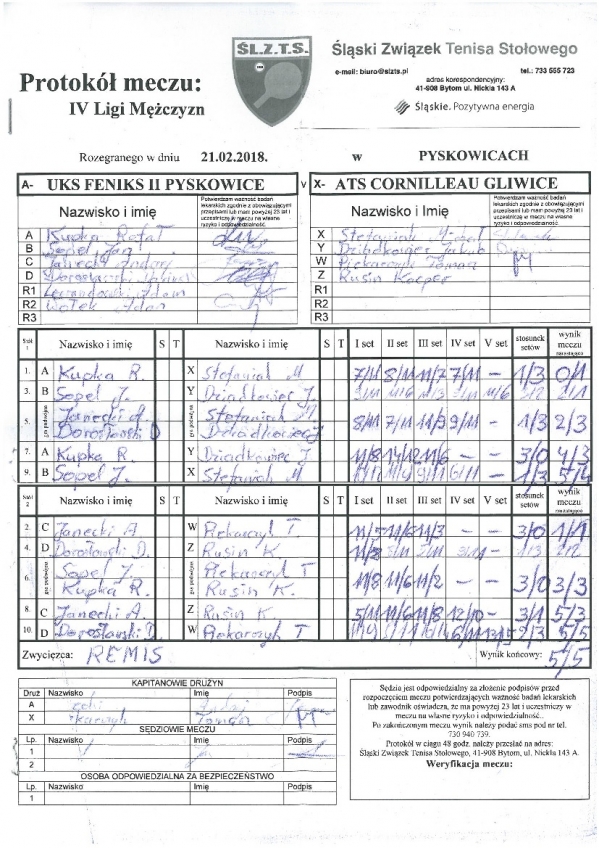 ŚL.Z.T.S.
Śląski Związek Tenisa Stołowego
e-mail: biuro@slzts.pl
tel.: 733 655 723
adres korespondencyjny:
41-908 Bytom ul. Nickla 143 A
Śląskie. Pozytywna energia
Protokół meczu:
IV Ligi Mężczyzn
Rozegranego w dniu 21.02.2018. w PYSKOWICACH
A- UKS FENIKS II PYSKOWICE V X- ATS CORNILLEAU GLIWICE
Nazwisko i Imię
Potwierdzam ważność badań lekarskich zgodnie z obowiązującymi przepisami lub mam powyżej 23 lat i uczestniczę w meczu na własne ryzyko i odpowiedzialność.
Nazwisko i Imię
Potwierdzam ważność badań lekarskich zgodnie z obowiązującymi przepisami lub mam powyżej 23 lat i uczestniczę w meczu na własne ryzyko i odpowiedzialność.
A Kupka Rafał
B Sopel Jan
C Janecki Andrzej
D
R1 Lewandowski Adam
R2 Wołek Adam
R3
X Stefaniak
Y Dziadkowiec Jakub
W Piekarczyk Tomasz
Z Rusin Kacper
R1
R2
R3
Stół 1 Nazwisko i imię S T Nazwisko i imię S T I set II set III set IV set V set stosunek setów wynik meczu narastająco
1. A Kupka R. X Stefaniak M 7/11 8/11 11/7 7/11 - 1/3 0/1
3. B Sopel J. Y Dziadkowiec J. 11/6 3/2 2/1
5. gra podwójna Janecki A Stefaniak M 8/11 7/11 11/9 9/11 - 1/3 2/3
Dorosławski D Dziadkowiec J
7. A Kupka R. Y Dziadkowiec J 11/8 14/12 11/6 - - 3/0 4/3
9. B Sopel J. X Stefaniak M 9/11 6/11 - 1/3 5/4
Stół 2 Nazwisko i imię S T Nazwisko i imię S T I set II set III set IV set V set stosunek setów wynik meczu narastająco
2. C Janecki A W Piekarczyk T. 11/5 11/6 11/3 - - 3/0 1/1
4. D Dorosławski D. Z Rusin K. 11/8 3/11 - 1/3 2/2
6. gra podwójna Sopel J Piekarczyk T 11/8 11/6 11/2 - - 3/0 3/3
Kupka R. Rusin K.
8. C Janecki A. Z Rusin K 5/11 11/6 11/8 12/10 - 3/1 5/3
10. D Dorosławski D. W Piekarczyk T 6/11 13/15 2/3 5/5
Zwycięzca: REMIS Wynik końcowy: 5/5
KAPITANOWIE DRUŻYN
Druż Nazwisko Imię Podpis
A
X
SĘDZIOWIE MECZU
Lp. Nazwisko Imię Podpis
1
2
OSOBA ODPOWIEDZIALNA ZA BEZPIECZEŃSTWO
Lp. Nazwisko Imię Podpis
1
Sędzia jest odpowiedzialny za złożenie podpisów przed
rozpoczęciem meczu potwierdzających ważność badań lekarskich
lub zawodnik oświadcza, że ma powyżej 23 lat i uczestniczy w
meczu na własne ryzyko i odpowiedzialność.
Po zakończonym meczu wynik należy podać sms pod nr tel.
730 940 739.
Protokół w ciągu 48 godz. należy przesłać na adres:
Śląski Związek Tenisa Stołowego, 41-908 Bytom, ul. Nickla 143 A.
Weryfikacja meczu: